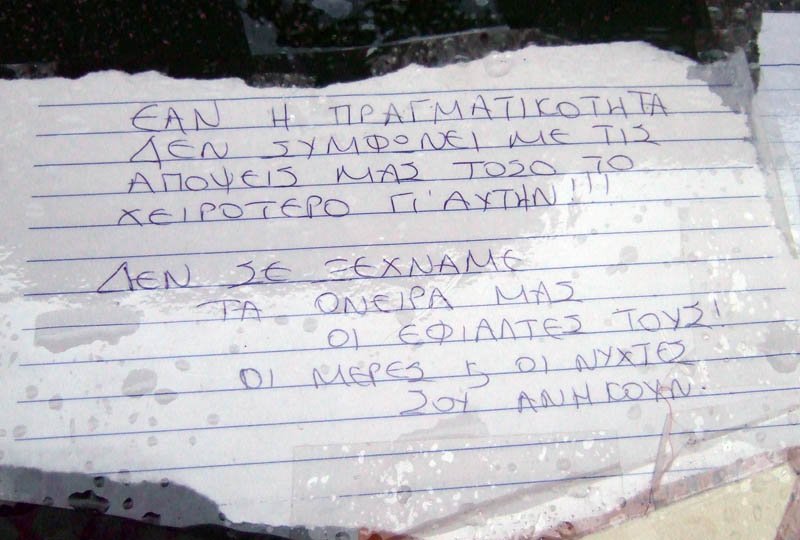 ΕΑΝ Η ΠΡΑΓΜΑΤΙΚΟΤΗΤΑ
ΔΕΝ ΣΥΜΦΩΝΕΙ ΜΕ ΤΙΣ
ΑΠΟΨΕΙΣ ΜΑΣ ΤΟΣΟ ΤΟ
ΧΕΙΡΟΤΕΡΟ ΓΙ'ΑΥΤΗΝ!!!
ΔΕΝ ΣΕ ΞΕΧΝΑΜΕ
ΤΑ ΟΝΕΙΡΑ ΜΑΣ
ΟΙ ΕΦΙΑΛΤΕΣ ΤΟΥΣ!
ΟΙ ΜΕΡΕΣ ϗ ΟΙ ΝΥΧΤΕΣ
ΣΟΥ ΑΝΗΚΟΥΝ.